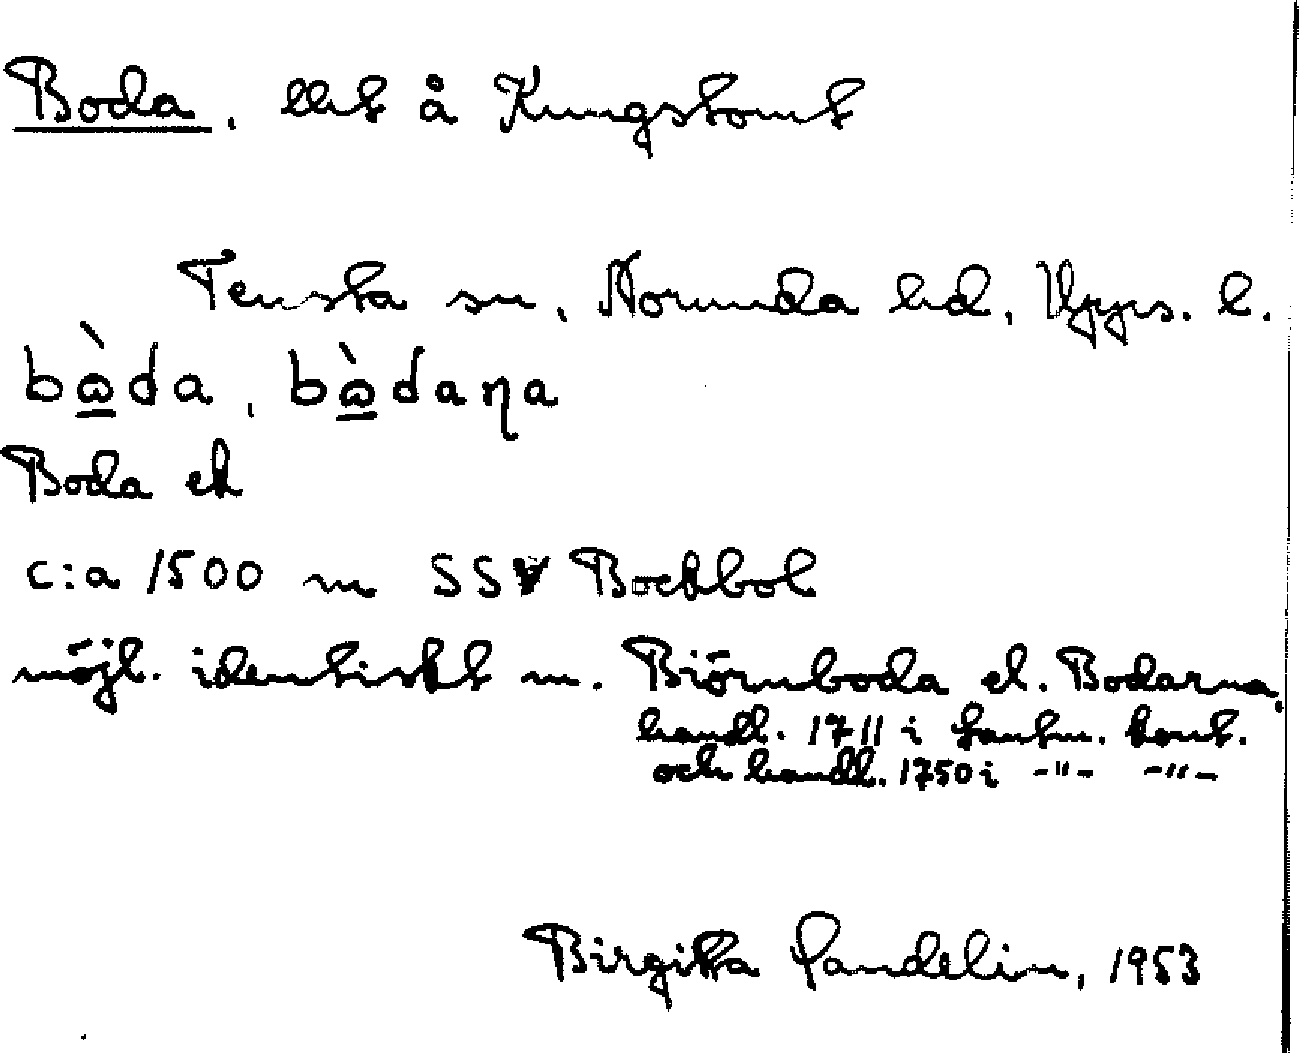 Boda, llt å Kungstomt
Tensta sn, Norunda hd, Upps. l.
bɷ̀da, bɷ̀daɳa
Boda ek
c:a 1500 m SSV Bockbol
möjl. identiskt m. Biörnboda el. Bodarna,
handl. 1711 i Lantm. kont.
och handl. 1750 i -"- -"-
Birgitta Sandelin, 1953